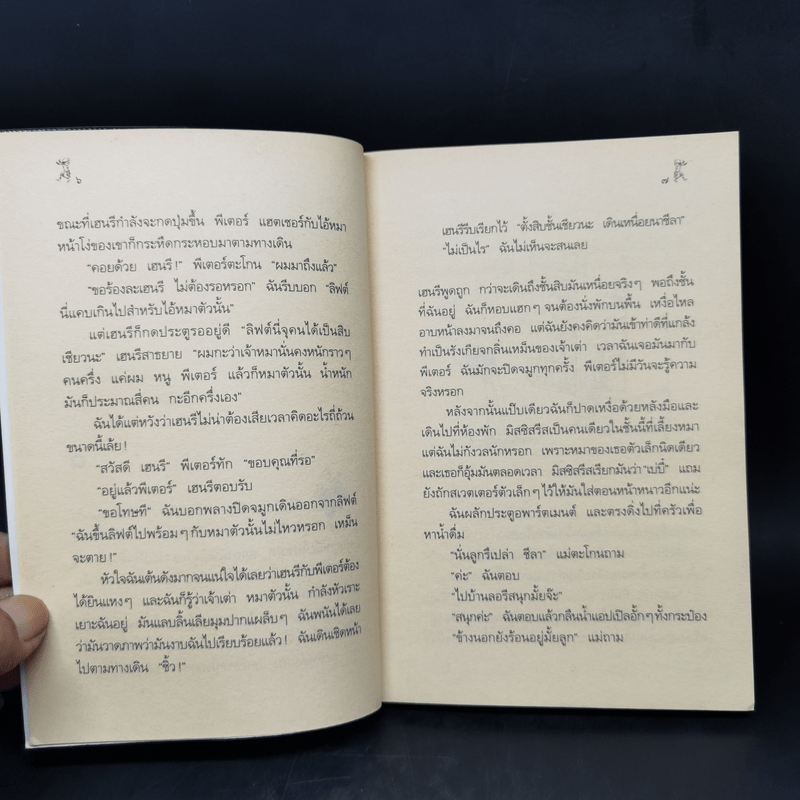 ๖
ขณะที่เฮนรีกำลังจะกดปุ่มขึ้น พีเตอร์ แฮตเชอร์กับไอ้หมา
หน้าโง่ของเขาก็กระหืดกระหอบมาตามทางเดิน
“คอยด้วย เฮนรี!” พีเตอร์ตะโกน “ผมมาถึงแล้ว”
“ขอร้องละเฮนรี ไม่ต้องรอหรอก” ฉันรีบบอก “ลิฟต์
นี่แคบเกินไปสำหรับไอ้หมาตัวนั้น”
แต่เฮนรีก็กดประตูรออยู่ดี “ลิฟต์นี่จุคนได้เป็นสิบ
เชียวนะ” เฮนรีสาธยาย “ผมกะว่าเจ้าหมานั่นคงหนักราวๆ
คนครึ่ง แค่ผม หนู พีเตอร์ แล้วก็หมาตัวนั้น น้ำหนัก
มันก็ประมาณสี่คน กะอีกครึ่งเอง”
ฉันได้แต่หวังว่าเฮนรีไม่น่าต้องเสียเวลาคิดอะไรถี่ถ้วน
ขนาดนี้เล้ย!
“สวัสดี เฮนรี” พีเตอร์ทัก “ขอบคุณที่รอ”
“อยู่แล้วพีเตอร์” เฮนรีตอบรับ
“ขอโทษที” ฉันบอกพลางปิดจมูกเดินออกจากลิฟต์
“ฉันขึ้นลิฟต์ไปพร้อมๆ กับหมาตัวนั้นไม่ไหวหรอก เหม็น
จะตาย!”
หัวใจฉันเต้นดังมากจนแน่ใจได้เลยว่าเฮนรีกับพีเตอร์ต้อง
ได้ยินแหงๆ และฉันก็รู้ว่าเจ้าเต่า หมาตัวนั้น กำลังหัวเราะ
เยาะฉันอยู่ มันแลบลิ้นเลียมุมปากแผล็บๆ ฉันพนันได้เลย
ว่ามันวาดภาพว่ามันงาบฉันไปเรียบร้อยแล้ว! ฉันเดินเชิดหน้า
ไปตามทางเดิน “ชิ้ว!”
๗
เฮนรีรีบเรียกไว้ “ตั้งสิบชั้นเชียวนะ เดินเหนื่อยนาชีลา”
“ไม่เป็นไร” ฉันไม่เห็นจะสนเลย
เฮนรีพูดถูก กว่าจะเดินถึงชั้นสิบมันเหนื่อยจริงๆ พอถึงชั้น
ที่ฉันอยู่ ฉันก็หอบแฮกๆ จนต้องนั่งพักบนพื้น เหงื่อไหล
อาบหน้าลงมาจนถึงคอ แต่ฉันยังคงคิดว่ามันเข้าท่าดีที่แกล้ง
ทำเป็นรังเกียจกลิ่นเหม็นของเจ้าเต่า เวลาฉันเจอมันมากับ
พีเตอร์ ฉันมักจะปิดจมูกทุกครั้ง พีเตอร์ไม่มีวันจะรู้ความ
จริงหรอก
หลังจากนั้นแป๊บเดียวฉันก็ปาดเหงื่อด้วยหลังมือและ
เดินไปที่ห้องพัก มิสซิสรีสเป็นคนเดียวในชั้นนี้ที่เลี้ยงหมา
แต่ฉันไม่กังวลนักหรอก เพราะหมาของเธอตัวเล็กนิดเดียว
และเธอก็อุ้มมันตลอดเวลา มิสซิสรีสเรียกมันว่า“เบบี้” แถม
ยังถักสเวตเตอร์ตัวเล็กๆ ไว้ให้มันใส่ตอนหน้าหนาวอีกแน่ะ
ฉันผลักประตูอพาร์ตเมนต์ และตรงดิ่งไปที่ครัวเพื่อ
หาน้ำดื่ม
“นั่นลูกรึเปล่า ชีลา” แม่ตะโกนถาม
“ค่ะ” ฉันตอบ
“ไปบ้านลอรีสนุกมั้ยจ๊ะ”
“สนุกค่ะ” ฉันตอบแล้วกลืนน้ำแอปเปิลอั้กๆ ทั้งกระป๋อง
“ข้างนอกยังร้อนอยู่มั้ยลูก” แม่ถาม